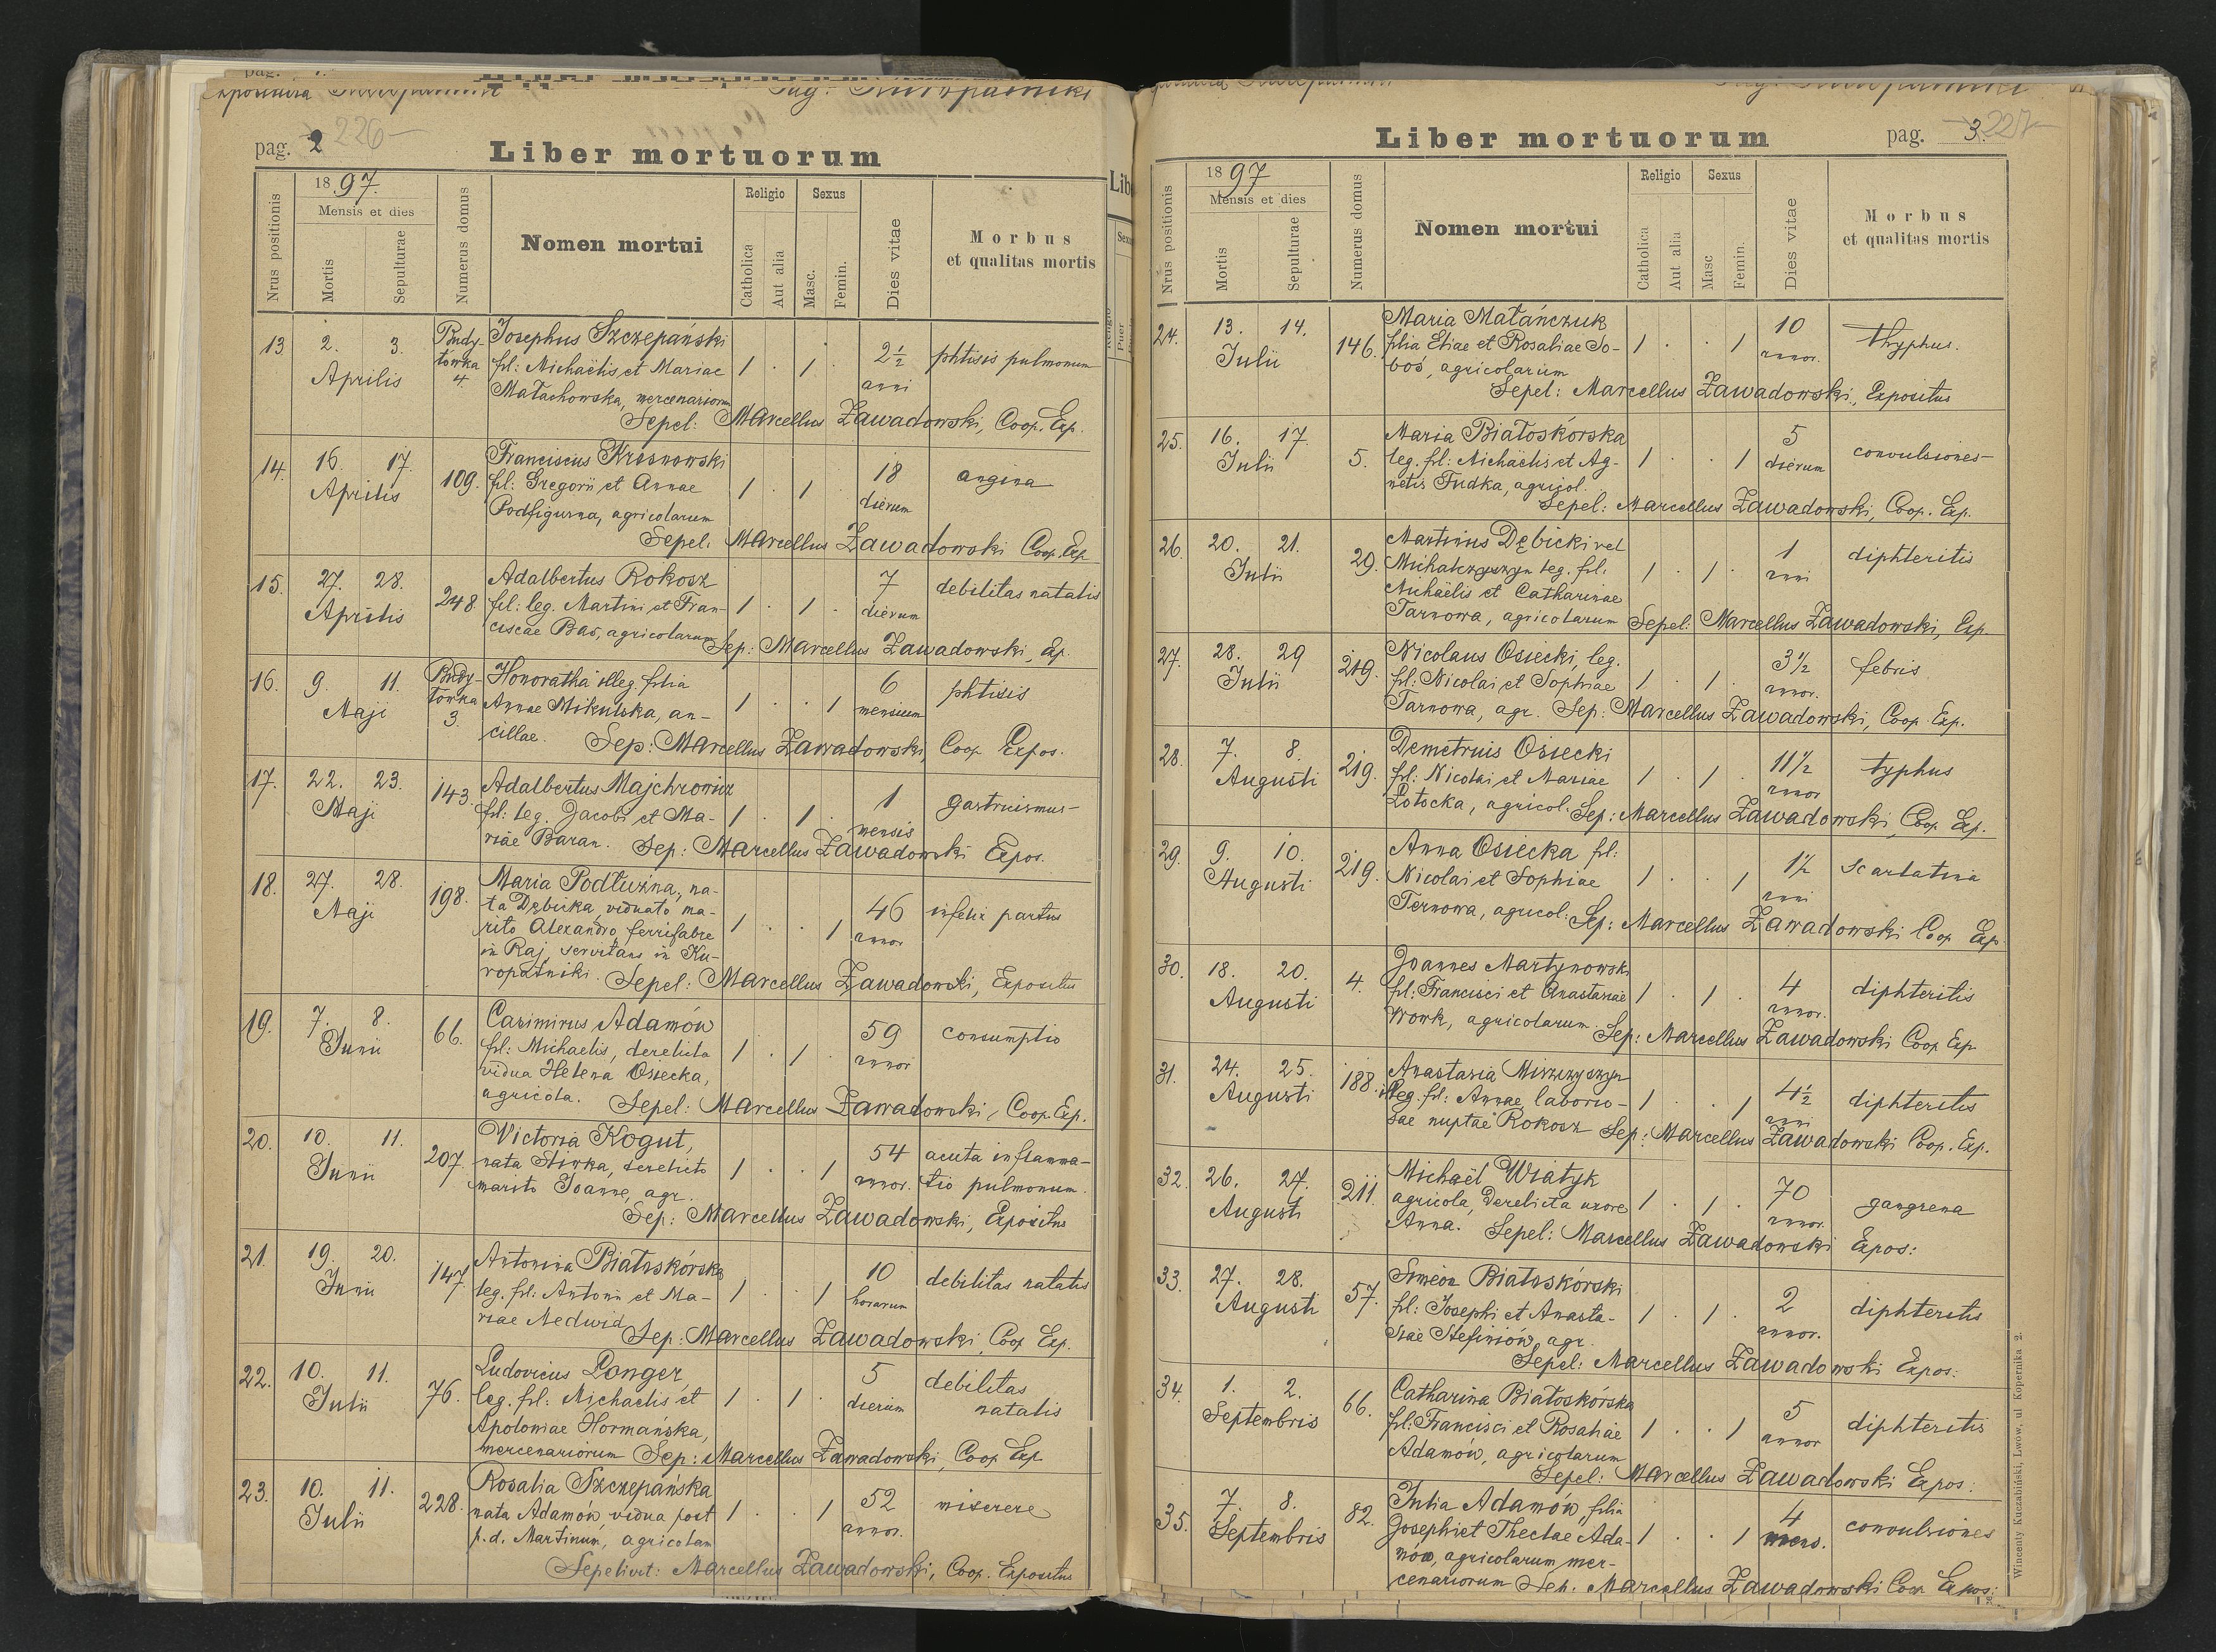 pag. 2 226
Liber mortuorum
1897.
Mensis et dies
Nrus positionis
Mortis
Sepulturae
Numerus domus
Nomen mortui
Religio
Catholica
Aut alia
Sexus
Masc.
Femin.
Dies vitae
Morbus
et qualitas mortis
13. 2. 3. Aprilis Budy-
tówka
4. Josephus Szczepański
fil: Michaëlis et Mariae 1 . 1 . 2½ anni phtisis pulmonum
Małachowska, mercenariorum
Sepel: Marcellus Zawadowski, Coop. Exp.
14. 16. 17. Aprilis 109. Franciscus Krasnowski
fil: Gregorii et Annae 1 . 1 . 18 dierum angina
Podfigurna, agricolarum
Sepel: Marcellus Zawadowski Coop. Exp.
15. 27. 28. Aprilis 248. Adalbertus Rokosz
fil: leg. Martini et Fran- 1 . 1 . 7 dierum debilitas natalis
ciscae Bas, agricolarum
Sep: Marcellus Zawadowski, Exp.
16. 9. 11. Maji Budy-
tówka
3. Honoratha illeg. filia
Annae Mikulska, an- 1 . . 1 6 mensium phtisis
cillae. Sep: Marcellus Zawadowski, Coop. Expos.
17. 22. 23. Maji 143. Adalbertus Majchrowicz
fil: leg. Jacobi et Ma- 1 . 1 . 1 mensis gastruismus
riae Baran. Sep: Marcellus Zawadowski Expos.
18. 27. 28. Maji 198. Maria Podłużna, na-
ta Dębicka, viduato ma-
rito Alexandro ferrifabre 1 . . 1 46 annor. infelix partus
in Raj, servitans in Ku-
ropatniki. Sepel: Marcellus Zawadowski, Expositus
19. 7. 8. Junii 66. Casimirus Adamów
fil: Michaelis, derelicta 1 . 1 . 59 annor consumptio
vidua Helena Osiecka,
agricola. Sepel: Marcellus Zawadowski, Coop. Exp.
20. 10. 11. Junii 207. Victoria Kogut,
nata Śliwka, derelicto 1 . . 1 54 annor. acuta inflamma-
marito Joanne, agr. tio pulmonum.
Sep: Marcellus Zawadowski, Expositus
21. 19. 20. Junii 147. Antonina Białoskórska
leg. fil: Antonii et Ma- 1 . . 1 10 horarum debilitas natalis
riae Nedwid
Sep: Marcellus Zawadowski, Coop. Exp.
22. 10. 11. Julii 76. Ludovicus Langer,
leg. fil: Michaelis et 1 . 1 . 5 dierum debilitas
natalis
Apoloniae Hormańska,
mercenariorum Sep: Marcellus Zawadowski, Coop Exp
23. 10. 11. Julii 228. Rosalia Szczepańska
nata Adamów, vidua post 1 . . 1 52 annor. miserere
p. d. Martinum, agricolam
Sepelivit: Marcellus Zawadowski, Coop. Expositus
Liber mortuorum
pag. 3. 227
1897
Mensis et dies
Nrus positionis
Mortis
Sepulturae
Numerus domus
Nomen mortui
Religio
Catholica
Aut alia
Sexus
Masc
Femin.
Dies vitae
Morbus
et qualitas mortis
24. 13. 14. Julii 146. Maria Matańczuk
filia Eliae et Rosaliae So- 1 . . 1 10 annor. thyphus.
boś, agricolarum
Sepel: Marcellus Zawadowski, Expositus
25. 16. 17. Julii 5. Maria Białoskórska
leg. fil: Michaëlis et Ag- 1 . . 1 5 dierum convulsiones
netis Fudka, agricol.
Sepel: Marcellus Zawadowski, Coop. Exp.
26. 20. 21. Julii 29. Martinus Dębicki vel
Michałczyszyn leg. fil. 1 . 1 . 1 anni diphteritis
Michaëlis et Catharinae
Tarnowa, agricolarum Sepel: Marcellus Zawadowski, Exp.
27. 28. 29 Julii 219. Nicolaus Osiecki, leg.
fil: Nicolai et Sophiae 1 . 1 . 3½ annor. febris
Tarnowa, agr. Sep: Marcellus Zawadowski, Coop. Exp.
28. 7. 8. Augusti 219. Demetrius Osiecki
fil: Nicolai et Mariae 1 . 1 . 11½ annor typhus
Potocka, agricol. Sep: Marcellus Zawadowski, Coop. Exp.
29. 9. 10. Augusti 219. Anna Osiecka fil:
Nicolai et Sophiae 1 . 1 1½ anni Scarlatina
Ternowa, agricol: Sep: Marcellus Zawadowski Coop Exp
30. 18. 20. Augusti 4. Joannes Martynowski
fil: Francisci et Anastasiae 1 . 1 . 4 annor. diphteritis
Wowk, agricolarum. Sep: Marcellus Zawadowski Coop Exp
31. 24. 25. Augusti 188. Anastasia Miszczyszyn
illeg. fil: Annae laborio- 1 . . 1 4½ anni diphteritis
sae nuptae Rokosz Sep: Marcellus Zawadowski Coop. Exp.
32. 26. 27. Augusti 211. Michaël Wiatyk
agricola, derelicta uxore 1 . 1 . 70 annor. gangrena
Anna. Sepel: Marcellus Zawadowski Expos:
33. 27. 28. Augusti 57. Simeon Białoskórski
fil: Josephi et Anasta- 1 . 1 . 2 annor. diphteritis
siae Stefiniów, agr.
Sepel: Marcellus Zawadowski Expos:
34. 1. 2. Septembris 66. Catharina Białoskórska
fil: Francisci et Rosaliae 1 . . 1 5 annor diphteritis
Adamów, agricolarum
Sepel: Marcellus Zawadowski Expos:
35. 7. 8. Septembris 82. Julia Adamów, filia
Josephi et Theclae Ada- 1 . . 1 4 mens. convulsiones
mów, agricolarum mer-
cenariorum Sep. Marcellus Zawadowski Coop Expos:
Wincenty Kuczabiński, Lwow, ul Kopernika 2.